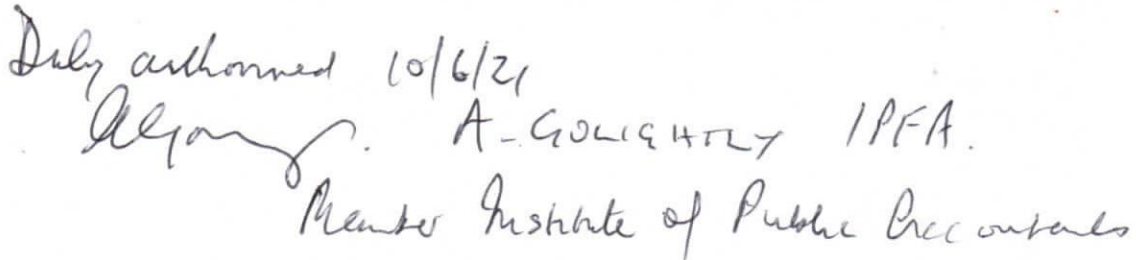 Duly authorised 10/6/21
A-GOLIGHTLY IPFA.
Member Institute of Public Accountants